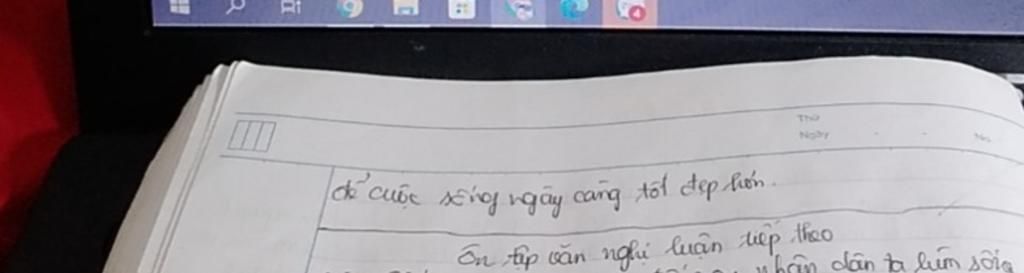 Thứ
Ngày No.
để cuộc sống ngày càng tốt đẹp hơn.
Ôn tập văn nghị luận tiếp theo
nhân dân ta luôn sống